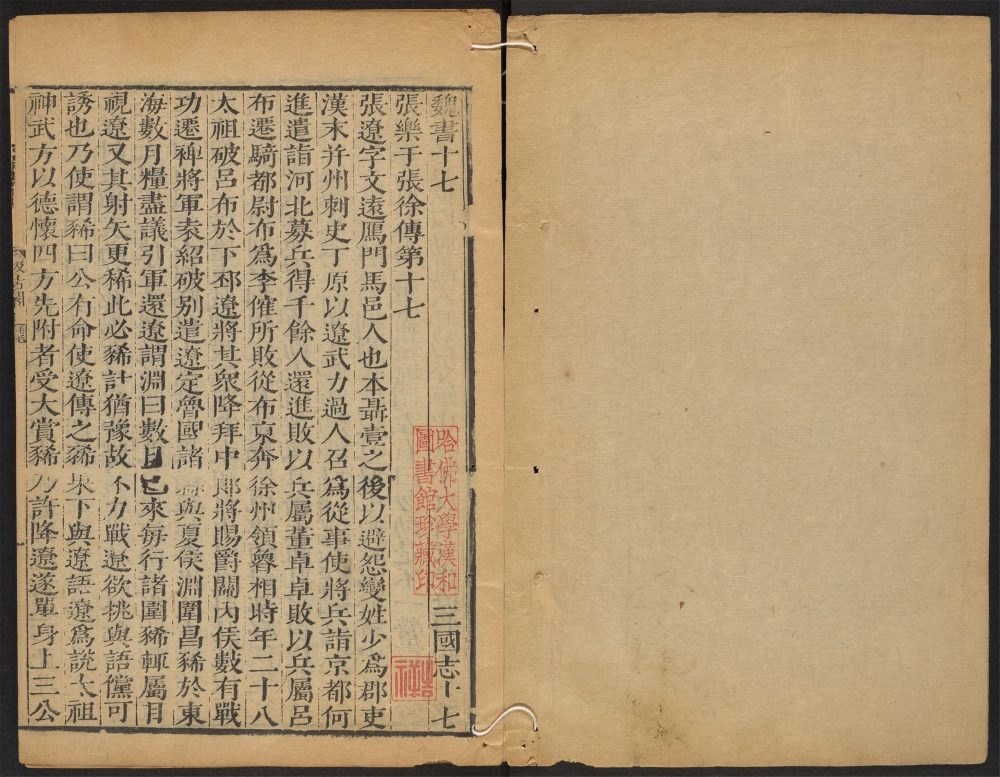 魏書十七 三國志十七
張樂于張徐傳第十七
張遼字文遠鴈門馬邑人也本聶壹之後以避怨變姓少爲郡吏
漢末并州刺史丁原以遼武力過人召爲從事使將兵詣京都何
進遣詣河北募兵得千餘人還進敗以兵屬董卓卓敗以兵屬呂
布遷騎都尉布爲李傕所敗從布東奔徐州領魯相時年二十八
太祖破呂布於下邳遼將其衆降拜中郎將賜爵關內侯數有戰
功遷裨將軍袁紹破别遣遼定魯國諸縣與夏侯淵圍昌豨於東
海數月糧盡議引軍還遼謂淵曰數日已來每行諸圍豨輒屬目
視遼又其射矢更稀此必豨計猶豫故不力戰遼欲挑與語儻可
誘也乃使謂豨曰公有命使遼傳之豨果下與遼語遼爲說太祖
神武方以德懷四方先附者受大賞豨乃許降遼遂單身上三公
汲古閣
哈佛大學漢和
圖書館珍藏印